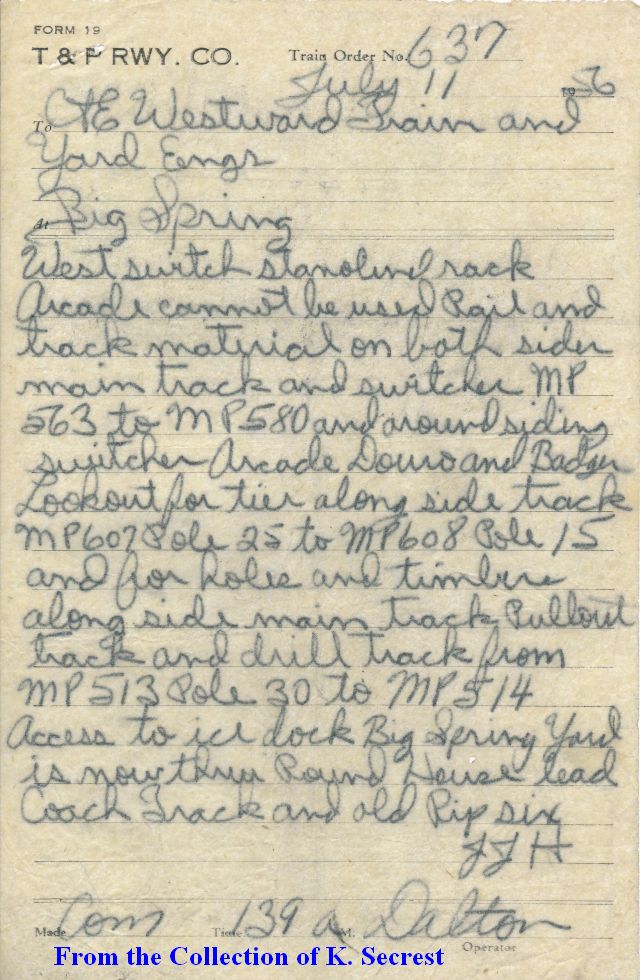 FORM 19
T & P RWY. CO. Train Order No. 637
July 11 1956
To C&E Westward Train and
Yard Eengs
At Big Spring
West switch stanolind rack
Arcade cannot be used Rail and
track material on both sides
main track and switches MP
563 to MP 580 and around siding
switches Arcade Douro and Badger
Lookout for ties along side track
MP607 Pole 25 to MP608 Pole 15
and for holes and timbers
along side main track Pullout
track and drill track from
MP 513 Pole 30 to MP 514
Access to ice dock Big Spring Yard
is now thru Round House lead
Coach Track and old Rip six
JJH
Made Com Time 139 A M. Dalton
Operator
From the Collection of K. Secrest